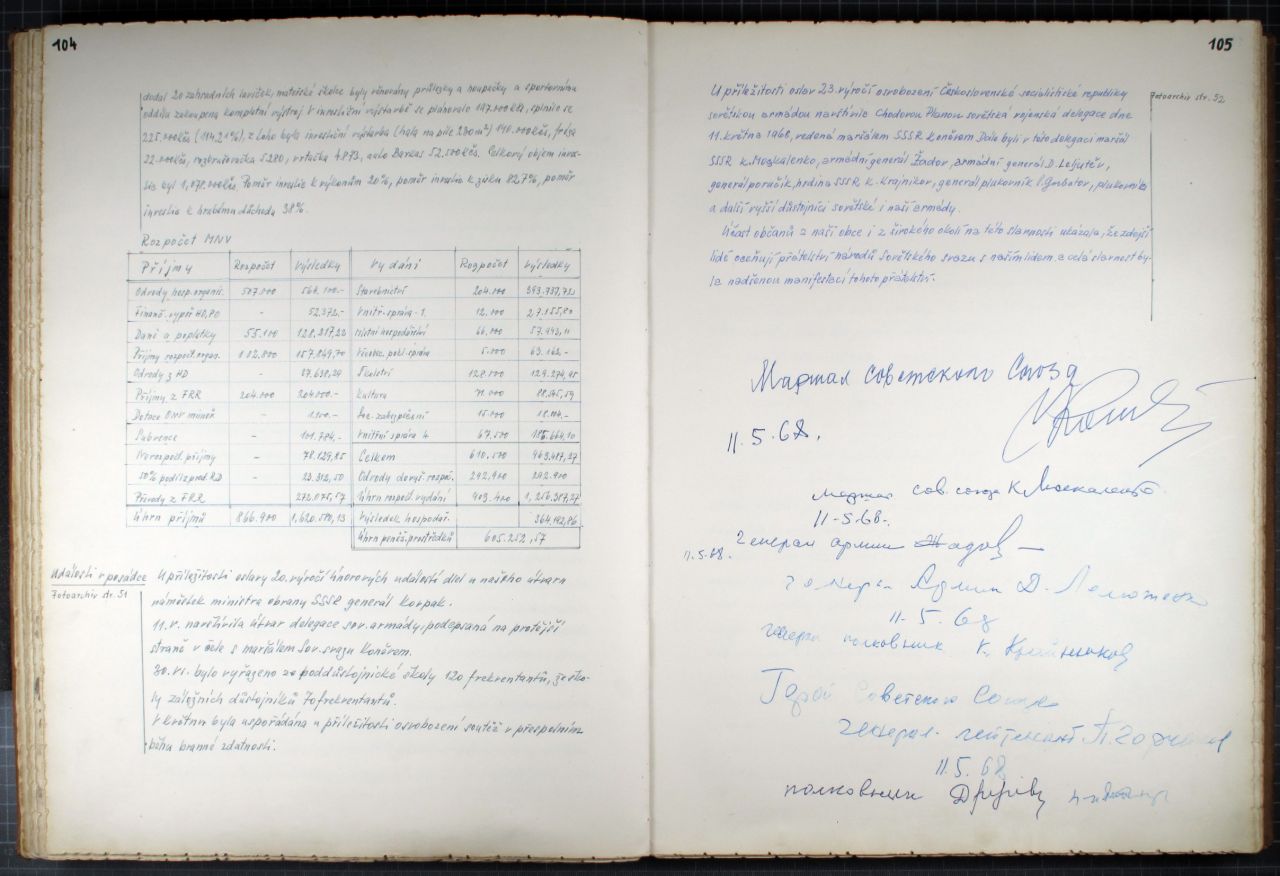 104
dodal 20 zahradních laviček, mateřské školce byly věnovány průlezky a houpačky a sportovnímu
oddílu zakoupena kompletní výstroj. V investiční výstavbě se plánovalo 197.000 Kčs, splnilo se
225.000 Kčs (114,21%), z toho byla investiční výstavba (hala na pile 200 m²) 140.000 Kčs, fréza
22.000 Kčs, rozbrušovačka 5280, vrtačka 4.873, auto Barkas 52.500 Kčs. Celkový objem inves-
tic byl 1,078.000 Kčs. Poměr investic k výkonům 20%, poměr investic k zisku 82,7%, poměr
investic k hrubému důchodu 38%.
Rozpočet MNV
Příjmy Rozpočet Výsledky Vydání Rozpočet Výsledky
Odvody hosp. organis. 507.000 564.100.- Stavebnictví 204.000
Finanč. vypoř HD, PO - 52.372.- Vnitř. správa - 1. 12.000 27.155,80
Daně a poplatky 55.100 128.217,22 Místní hospodářství 66.000 57.992,11
Příjmy rozpočt. organ. 102.800 157.849,70 správa 5.000 63.162.-
Odvody z HD - 27.638,24 Školství 128.100 129.274,95
Příjmy z FRR 204.000 204.000.- Kultura 71.000
Dotace ONV - 1.100.- Soc. zabezpečení 15.000
Subvence - 101.784.- Vnitřní správa 4. 67.500
příjmy - 78.129,85 Celkem 610.500 963.417,27
50% - 23.312,50 Odvody 292.900 292.900
Převody z FRR - 272.075,57 Úhrn rozpočt. vydání 903.400 1,256.317,27
Úhrn příjmů 866.900 Výsledek hospodář. 364.192,86
Úhrn peněž. prostředků 605.252,57
Události v posádce U příležitosti oslavy 20. výročí únorových událostí dlel u našeho útvaru
Fotoarchiv str. 51 náměstek ministra obrany SSSR generál Korpak.
11.V. navštívila útvar delegace sov. armády, podepsaná na protější
straně v čele s maršálem Sov. svazu Koněvem.
30.VI. bylo vyřazeno ze poddůstojnické školy 120 frekventantů, ze ško-
ly záložních důstojníků 70 frekventantů.
V květnu byla uspořádána u příležitosti osvobození soutěž v přespolním
běhu branné zdatnosti.
105
U příležitosti oslav 23. výročí osvobození Československé socialistické republiky
Fotoarchiv str. 52
sovětskou armádou navštívila Chodovou Planou sovětská vojenská delegace dne
11. května 1968, vedená maršálem SSSR Koněvem. Dále byli v této delegaci maršál
SSSR K. Moskalenko, armádní generál Žadov, armádní generál D. Leljutěv,
generál poručík, hrdina SSSR K. Krajnikov, generál plukovník Gorbatov, plukovník
a další vyšší důstojníci sovětské i naší armády.
Účast občanů z naší obce i z širokého okolí na této slavnosti ukázala, že zdejší
lidé oceňují přátelství národů Sovětského svazu s naším lidem a celá slavnost by-
la nadšenou manifestací tohoto přátelství.
Маршал Советского Союза
11.5.68.
Маршал Сов. союза К. Москаленко
11-5.68.
Генерал армии Жадов
11.5.68.
Генерал Армии Д. Лелюшенко
11.5.68
Генерал полковник К. Крайнюков
Герой Советского Союза
генерал-лейтенант П.
11.5.68
полковник